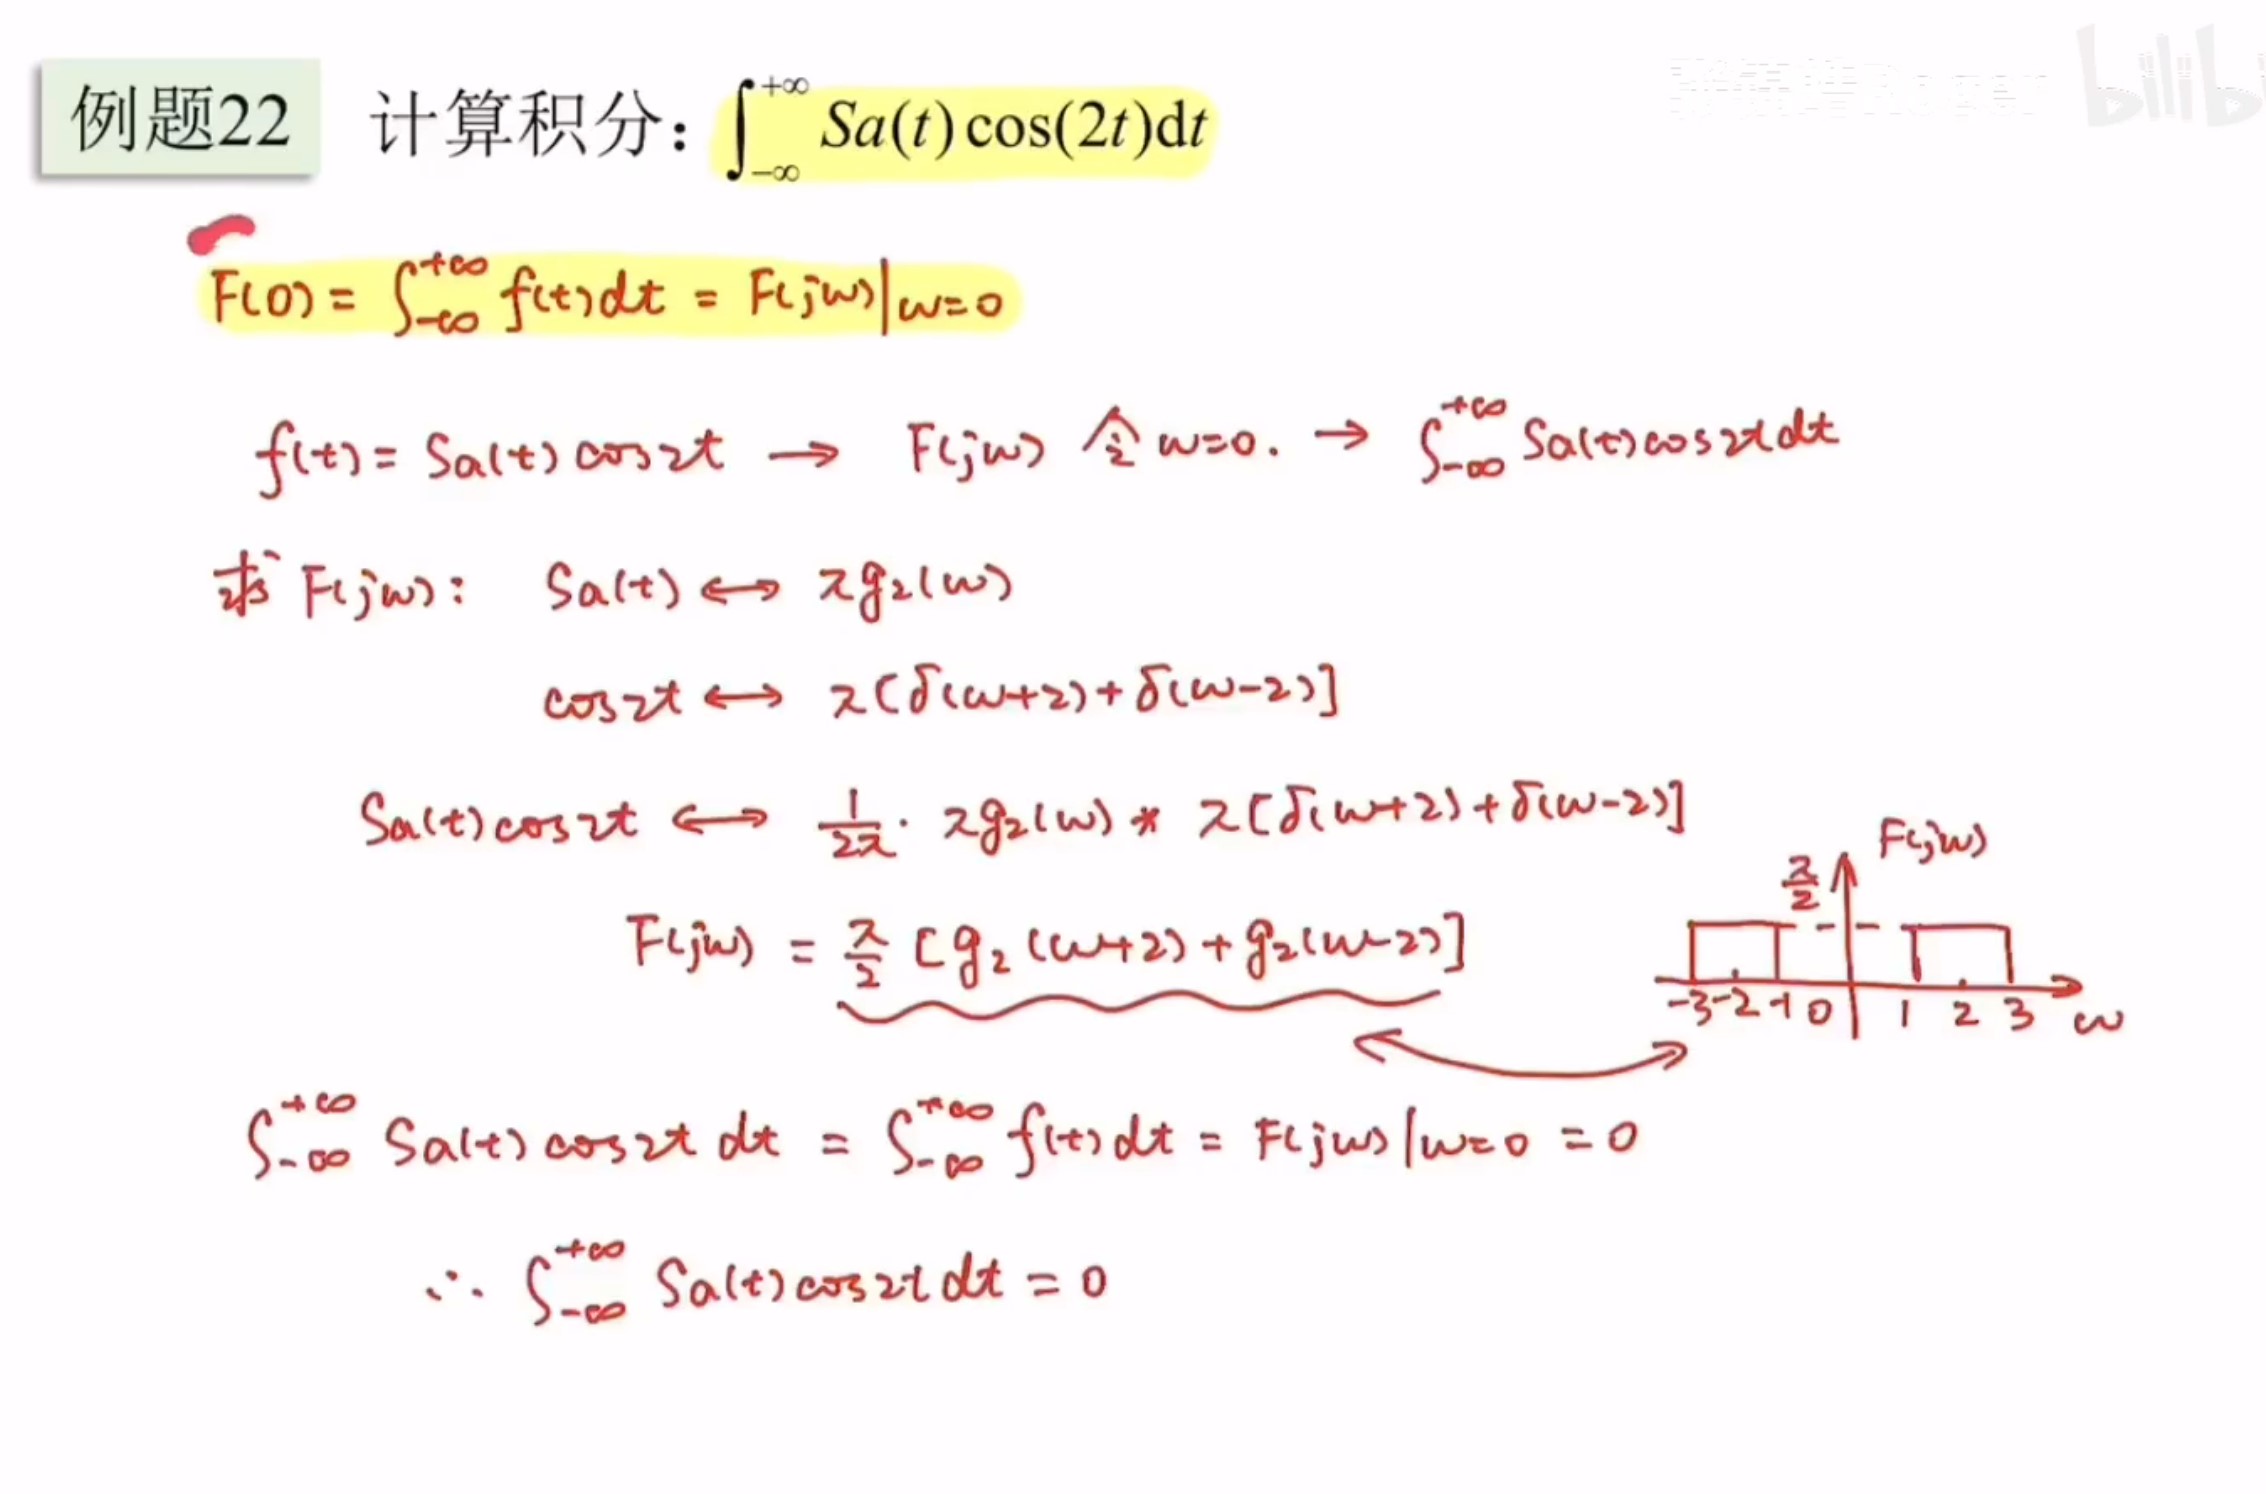 例题22 计算积分: ∫_{-∞}^{+∞} Sa(t)cos(2t)dt
bilibili
F(0) = ∫_{-∞}^{+∞} f(t)dt = F(jω)|ω=0
f(t) = Sa(t)cos2t → F(jω) 令ω=0. → ∫_{-∞}^{+∞} Sa(t)cos2tdt
求F(jω): Sa(t) ↔ πg₂(ω)
cos2t ↔ π[δ(ω+2)+δ(ω-2)]
Sa(t)cos2t ↔ 1/2π · πg₂(ω) * π[δ(ω+2)+δ(ω-2)]
F(jω) = π/2 [g₂(ω+2)+g₂(ω-2)]
π/2 F(jω)
-3 -2 -1 0 1 2 3 ω
∫_{-∞}^{+∞} Sa(t)cos2t dt = ∫_{-∞}^{+∞} f(t)dt = F(jω)|ω=0 = 0
∴ ∫_{-∞}^{+∞} Sa(t)cos2tdt = 0